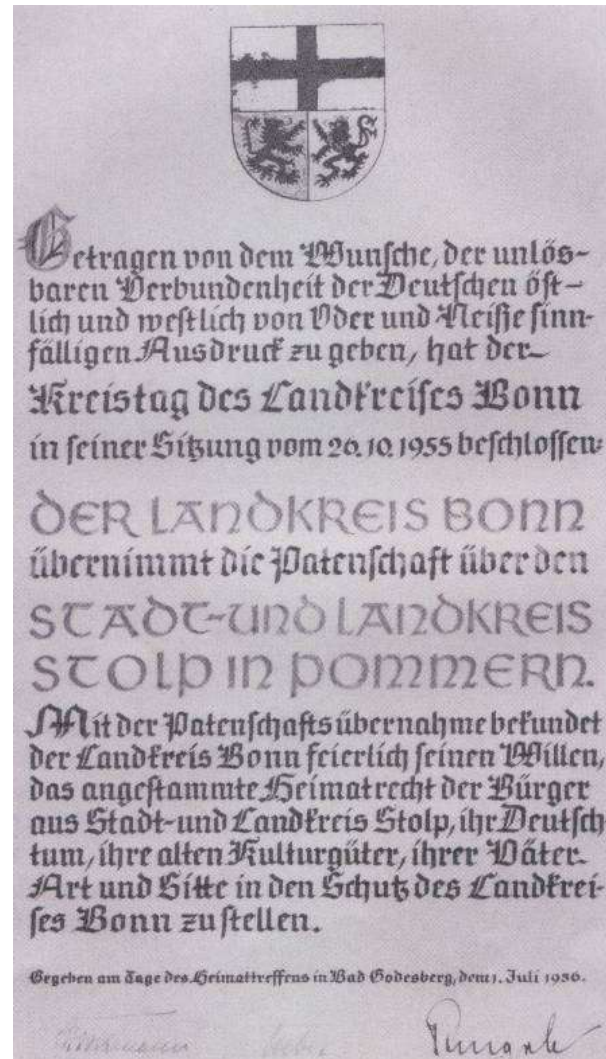 Getragen von dem Wunsche, der unlös-
baren Verbundenheit der Deutschen öst-
lich und westlich von Oder und Neiße sinn-
fälligen Ausdruck zu geben, hat der
Kreistag des Landkreises Bonn
in seiner Sitzung vom 26.10.1955 beschlossen:
DER LANDKREIS BONN
übernimmt die Patenschaft über den
STADT-UND LANDKREIS
STOLP IN POMMERN.
Mit der Patenschaftsübernahme bekundet
der Landkreis Bonn feierlich seinen Willen,
das angestammte Heimatrecht der Bürger
aus Stadt-und Landkreis Stolp, ihr Deutsch
tum, ihre alten Kulturgüter, ihrer Väter
Art und Sitte in den Schutz des Landkrei-
ses Bonn zu stellen.
Gegeben am Tage des Heimattreffens in Bad Godesberg, dem 1. Juli 1956.